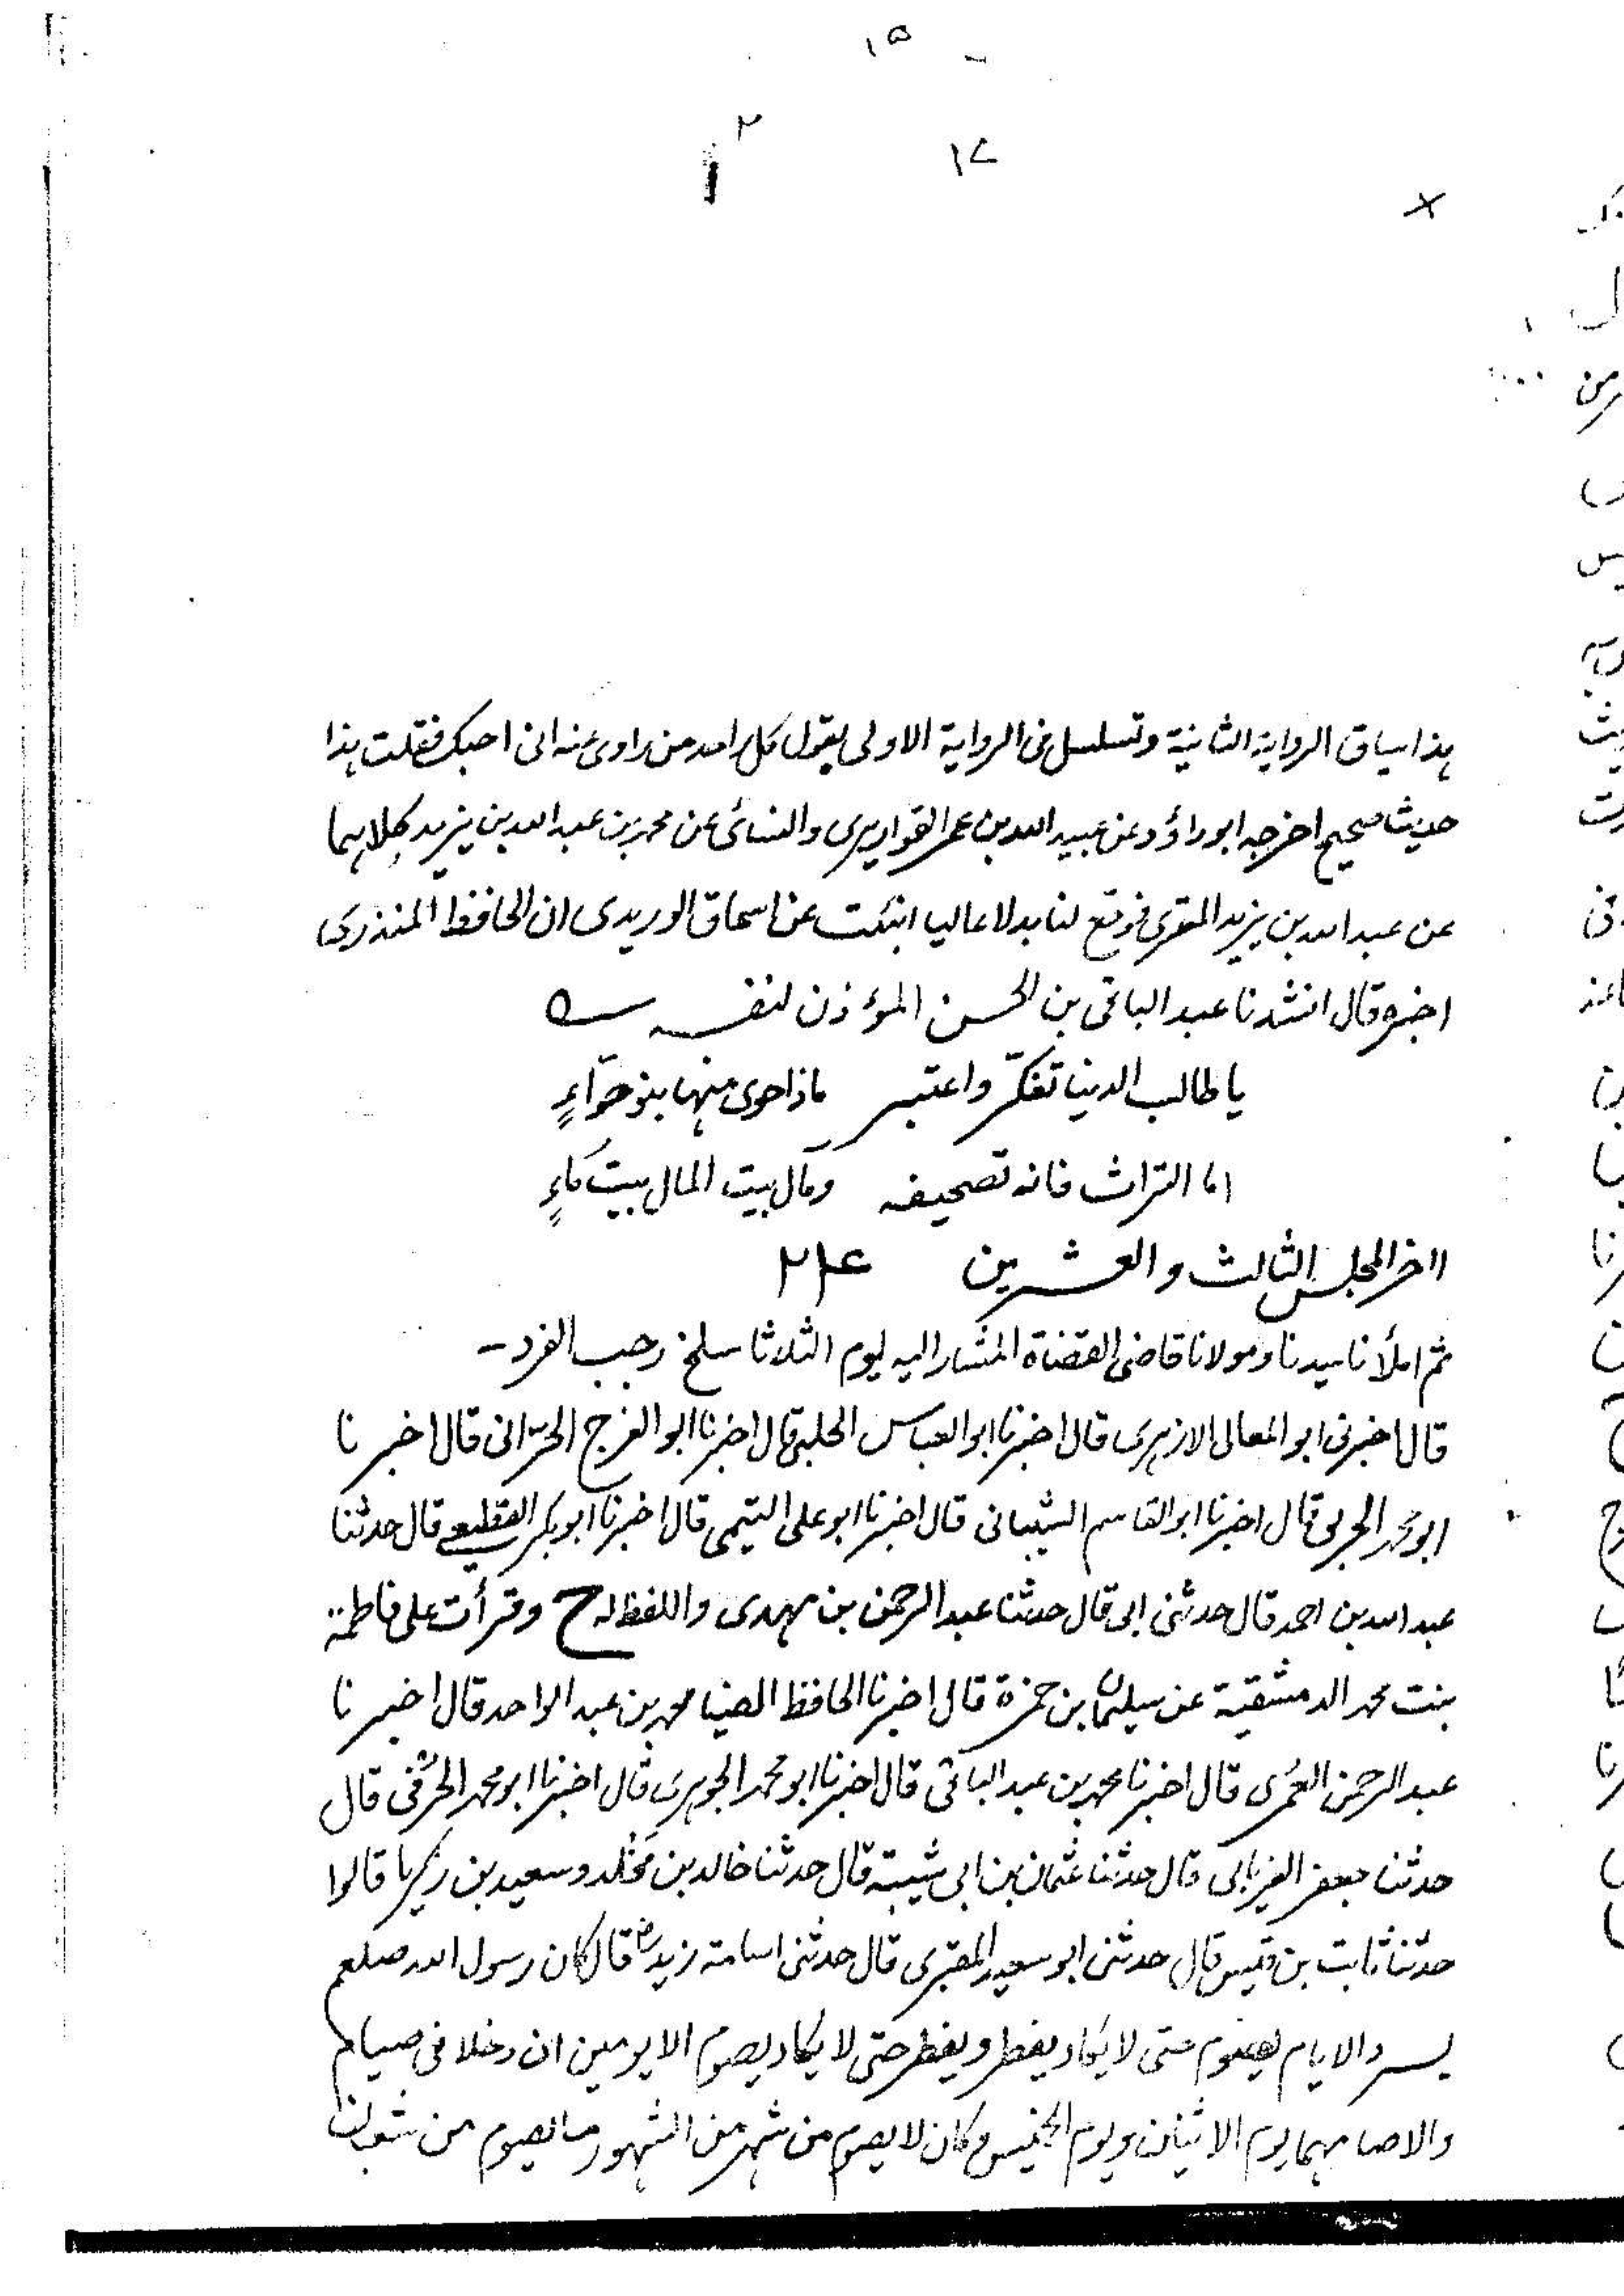 ١٥
٢
١٧
هذا سياق الرواية الثانية وتسلسل فى الرواية الاولى بقول كل راحد من راوى عنه انى احبك فقلت هذا
حديث صحيح اخرجه ابو داؤد عن عبيد الله بن عمر القواريرى والنسائى عن محمد بن عبد الله بن يزيد كلاهما
عن عبد الله بن يزيد المقرى فوقع لنا بدلا عاليا انبئت عن اسحاق الوريدى ان الحافظ المنذرى
اخبره قال انشدنا عبد الباقى بن الحسن المؤذن لنفسه
يا طالب الدنيا تفكّر واعتبر ماذا حوى منها بنو حوّاءٍ
اما التراث فانه تصحيفه ومآل بيت المال بيت مَاءٍ
اٰخر المجلس الثالث والعشرين
ثم املأنا سيدنا ومولانا قاضى القضاة المشار اليه يوم الثلاثا سلخ رجب الفرد ــ
قال اخبرنى ابو المعالى الازهرى قال اخبرنا ابو العباس الحلبى قال اخبرنا ابو الفرج الحرّانى قال اخبرنا
ابو محمد الحربى قال اخبرنا ابو القاسم الشيبانى قال اخبرنا ابو على التيمى قال اخبرنا ابو بكر القطيعى قال حدثنا
عبد الله بن احمد قال حدثنى ابى قال حدثنا عبد الرحمن بن مهدى واللفظ له ح وقرأت على فاطمة
بنت محمد الدمشقية عن سليمان بن حمزة قال اخبرنا الحافظ الضيا محمد بن عبد الواحد قال اخبرنا
عبد الرحمن العُمرى قال اخبرنا محمد بن عبد الباقى قال اخبرنا ابو محمد الجوهرى قال اخبرنا ابو محمد الخرقى قال
حدثنا جعفر الفريابى قال حدثنا عثمان بن ابى شيبة قال حدثنا خالد بن مَخْلد وسعيد بن زكريا قالوا
حدثنا ثابت بن قيس قال حدثنى ابو سعيد المقبرى قال حدثنى اسامة زيد رض قال كان رسول الله صلعم
يسرد الايام يصوم حتى لا يكاد يفطر ويفطر حتى لا يكاد يصوم الا يومين ان دخلا فى صيام
والا صامهما يوم الاثنين ويوم الخميس وكان لا يصوم من شهر من الشهور ما يصوم من شعبان